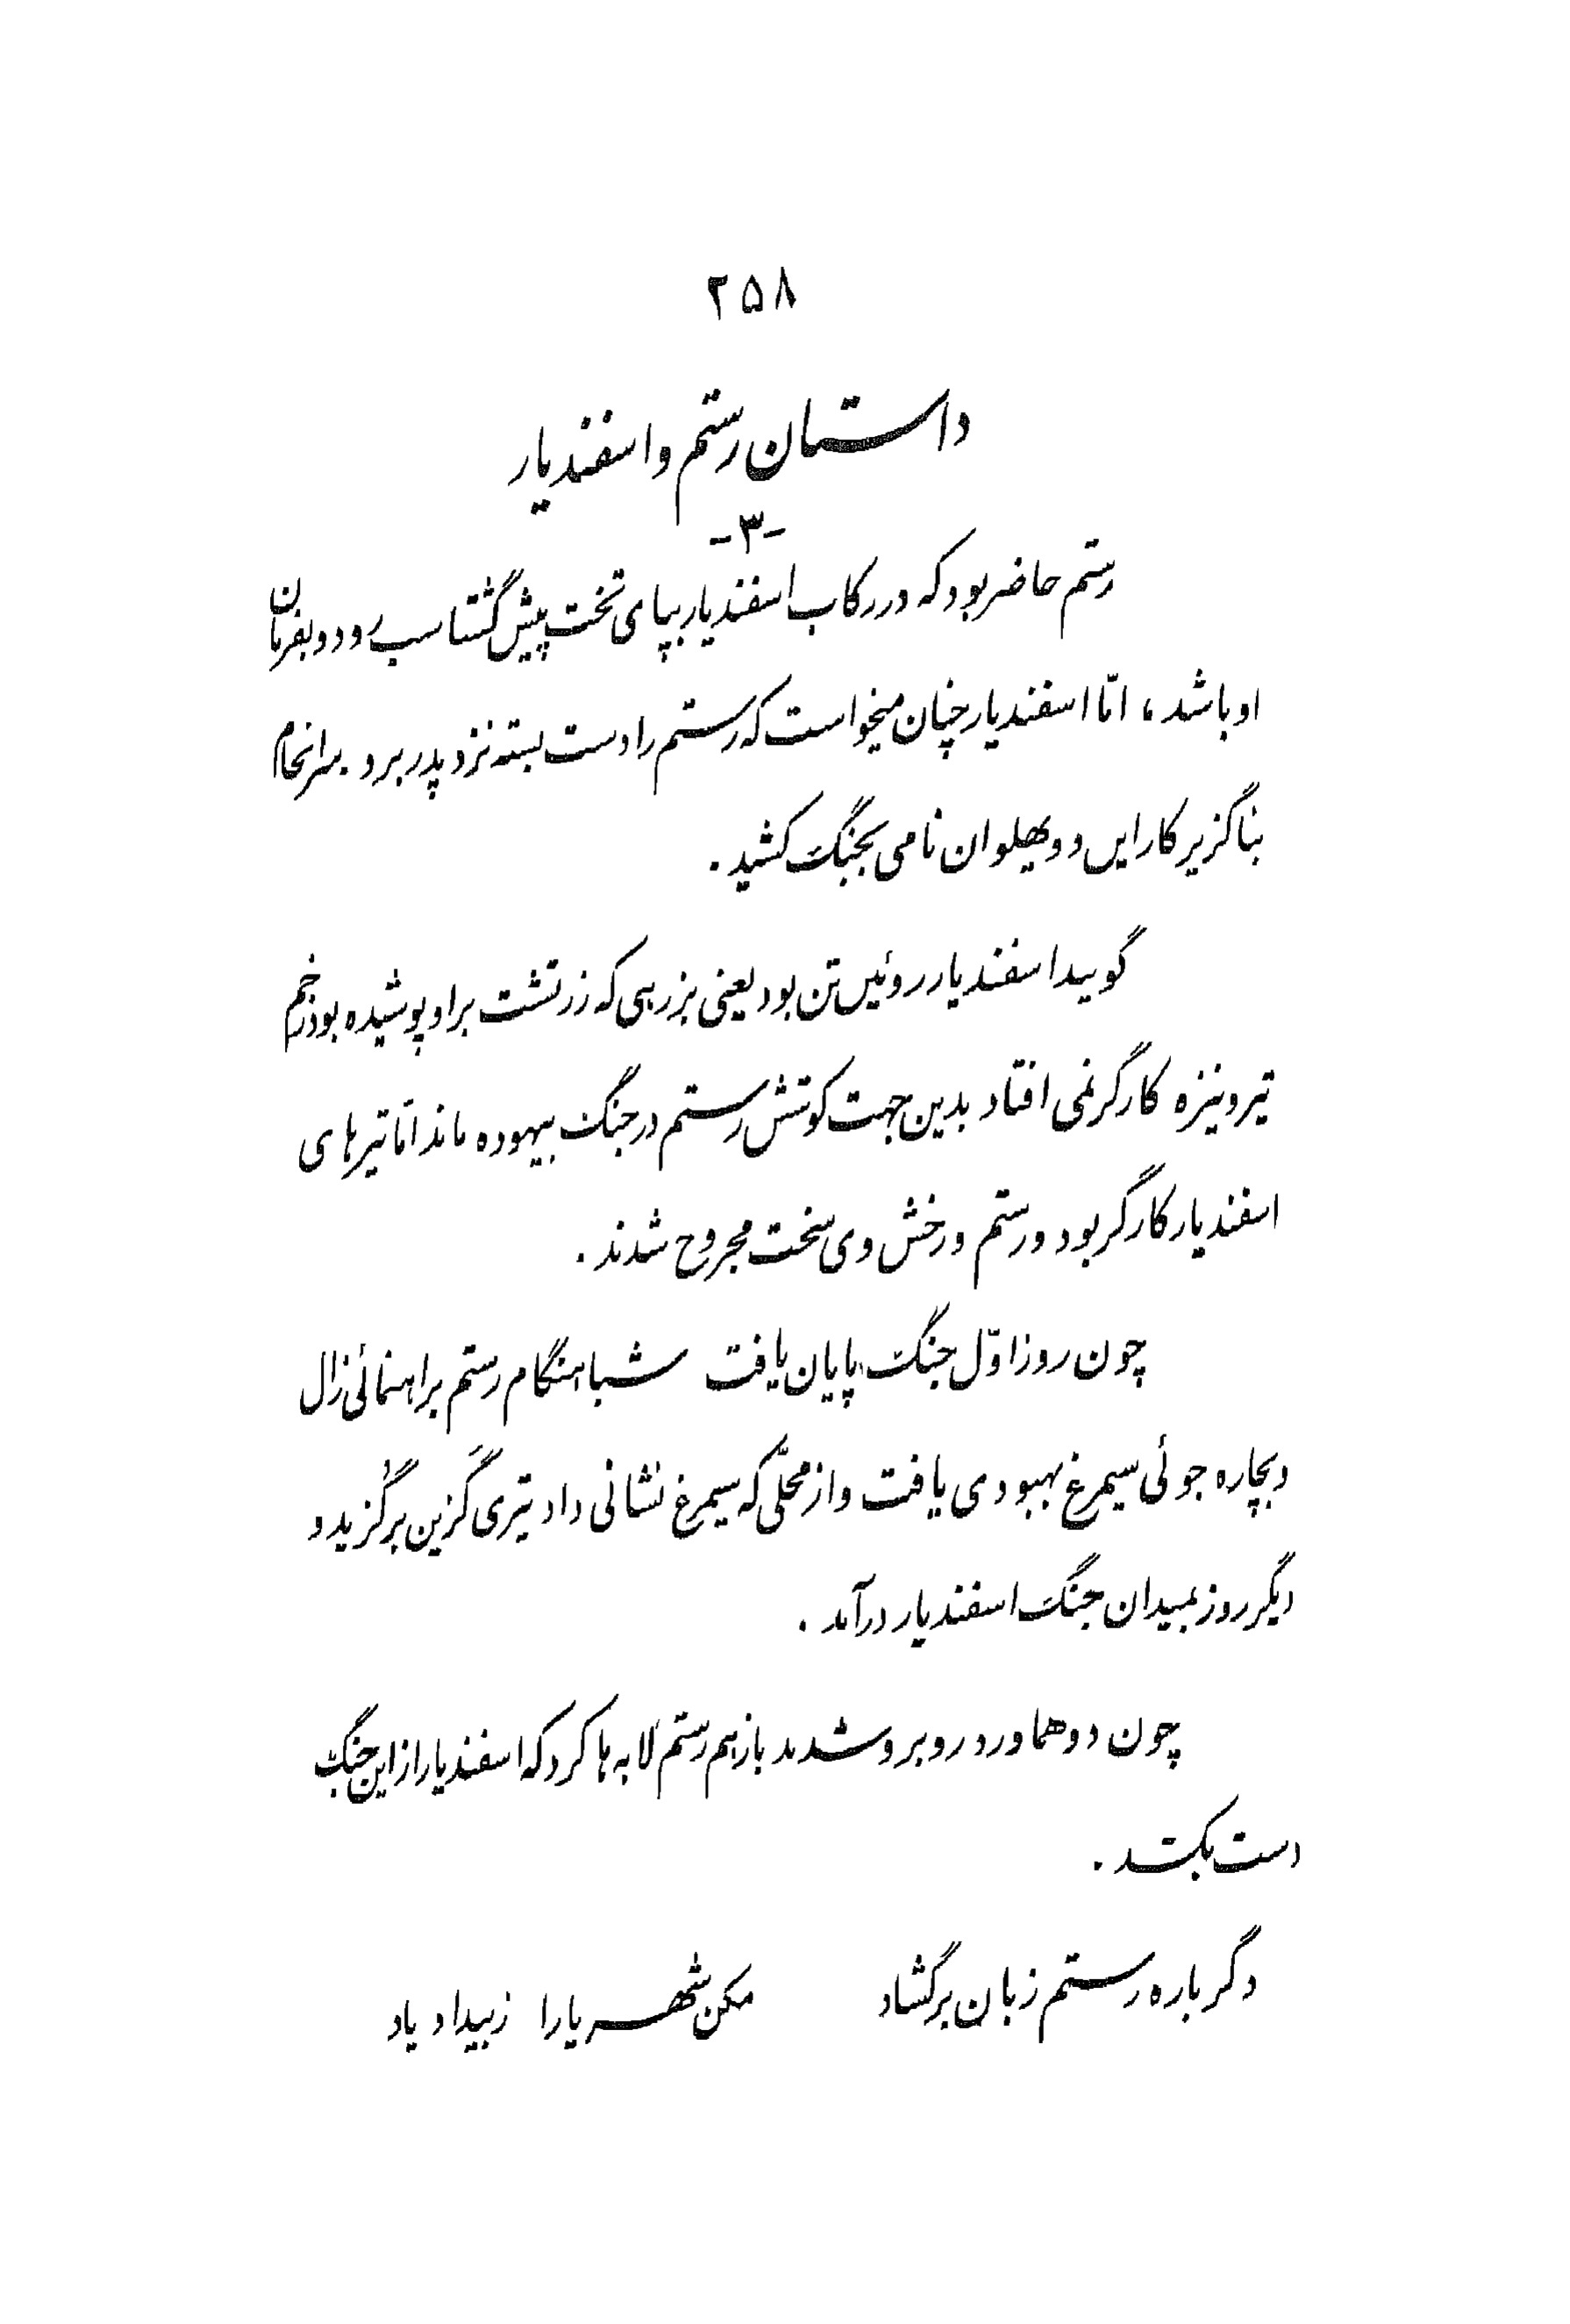 ۲۵۸
داستان رستم و اسفندیار
-۳-
رستم حاضر بود که در رکاب اسفندیار بپای تخت پیش گشتاسب رود و بفرمان
او باشد، امّا اسفندیار چنان میخواست که رستم را دست بسته نزد پدر برد. سرانجام
بناگزیر کار این دو پهلوان نامی بجنگ کشید.
گویند اسفندیار روئین تن بود یعنی بزرهی که زرتشت بر او پوشیده بود زخم
تیر و نیزه کارگر نمی افتاد بدین جهت کوشش رستم در جنگ بیهوده ماند امّا تیرهای
اسفندیار کارگر بود و رستم و رخش وی سخت مجروح شدند.
چون روز اوّل جنگ پایان یافت شباهنگام رستم براهنمائی زال
و بچاره جوئی سیمرغ بهبودی یافت و از محلّی که سیمرغ نشانی داد تیری گزین برگزید و
دیگر روز بمیدان جنگ اسفندیار درآمد.
چون دو هماورد روبرو شدند باز هم رستم لابه ها کرد که اسفندیار از این جنگ
دست بکشد.
دگر باره رستم زبان برگشاد مکن شهریارا ز بیداد یاد